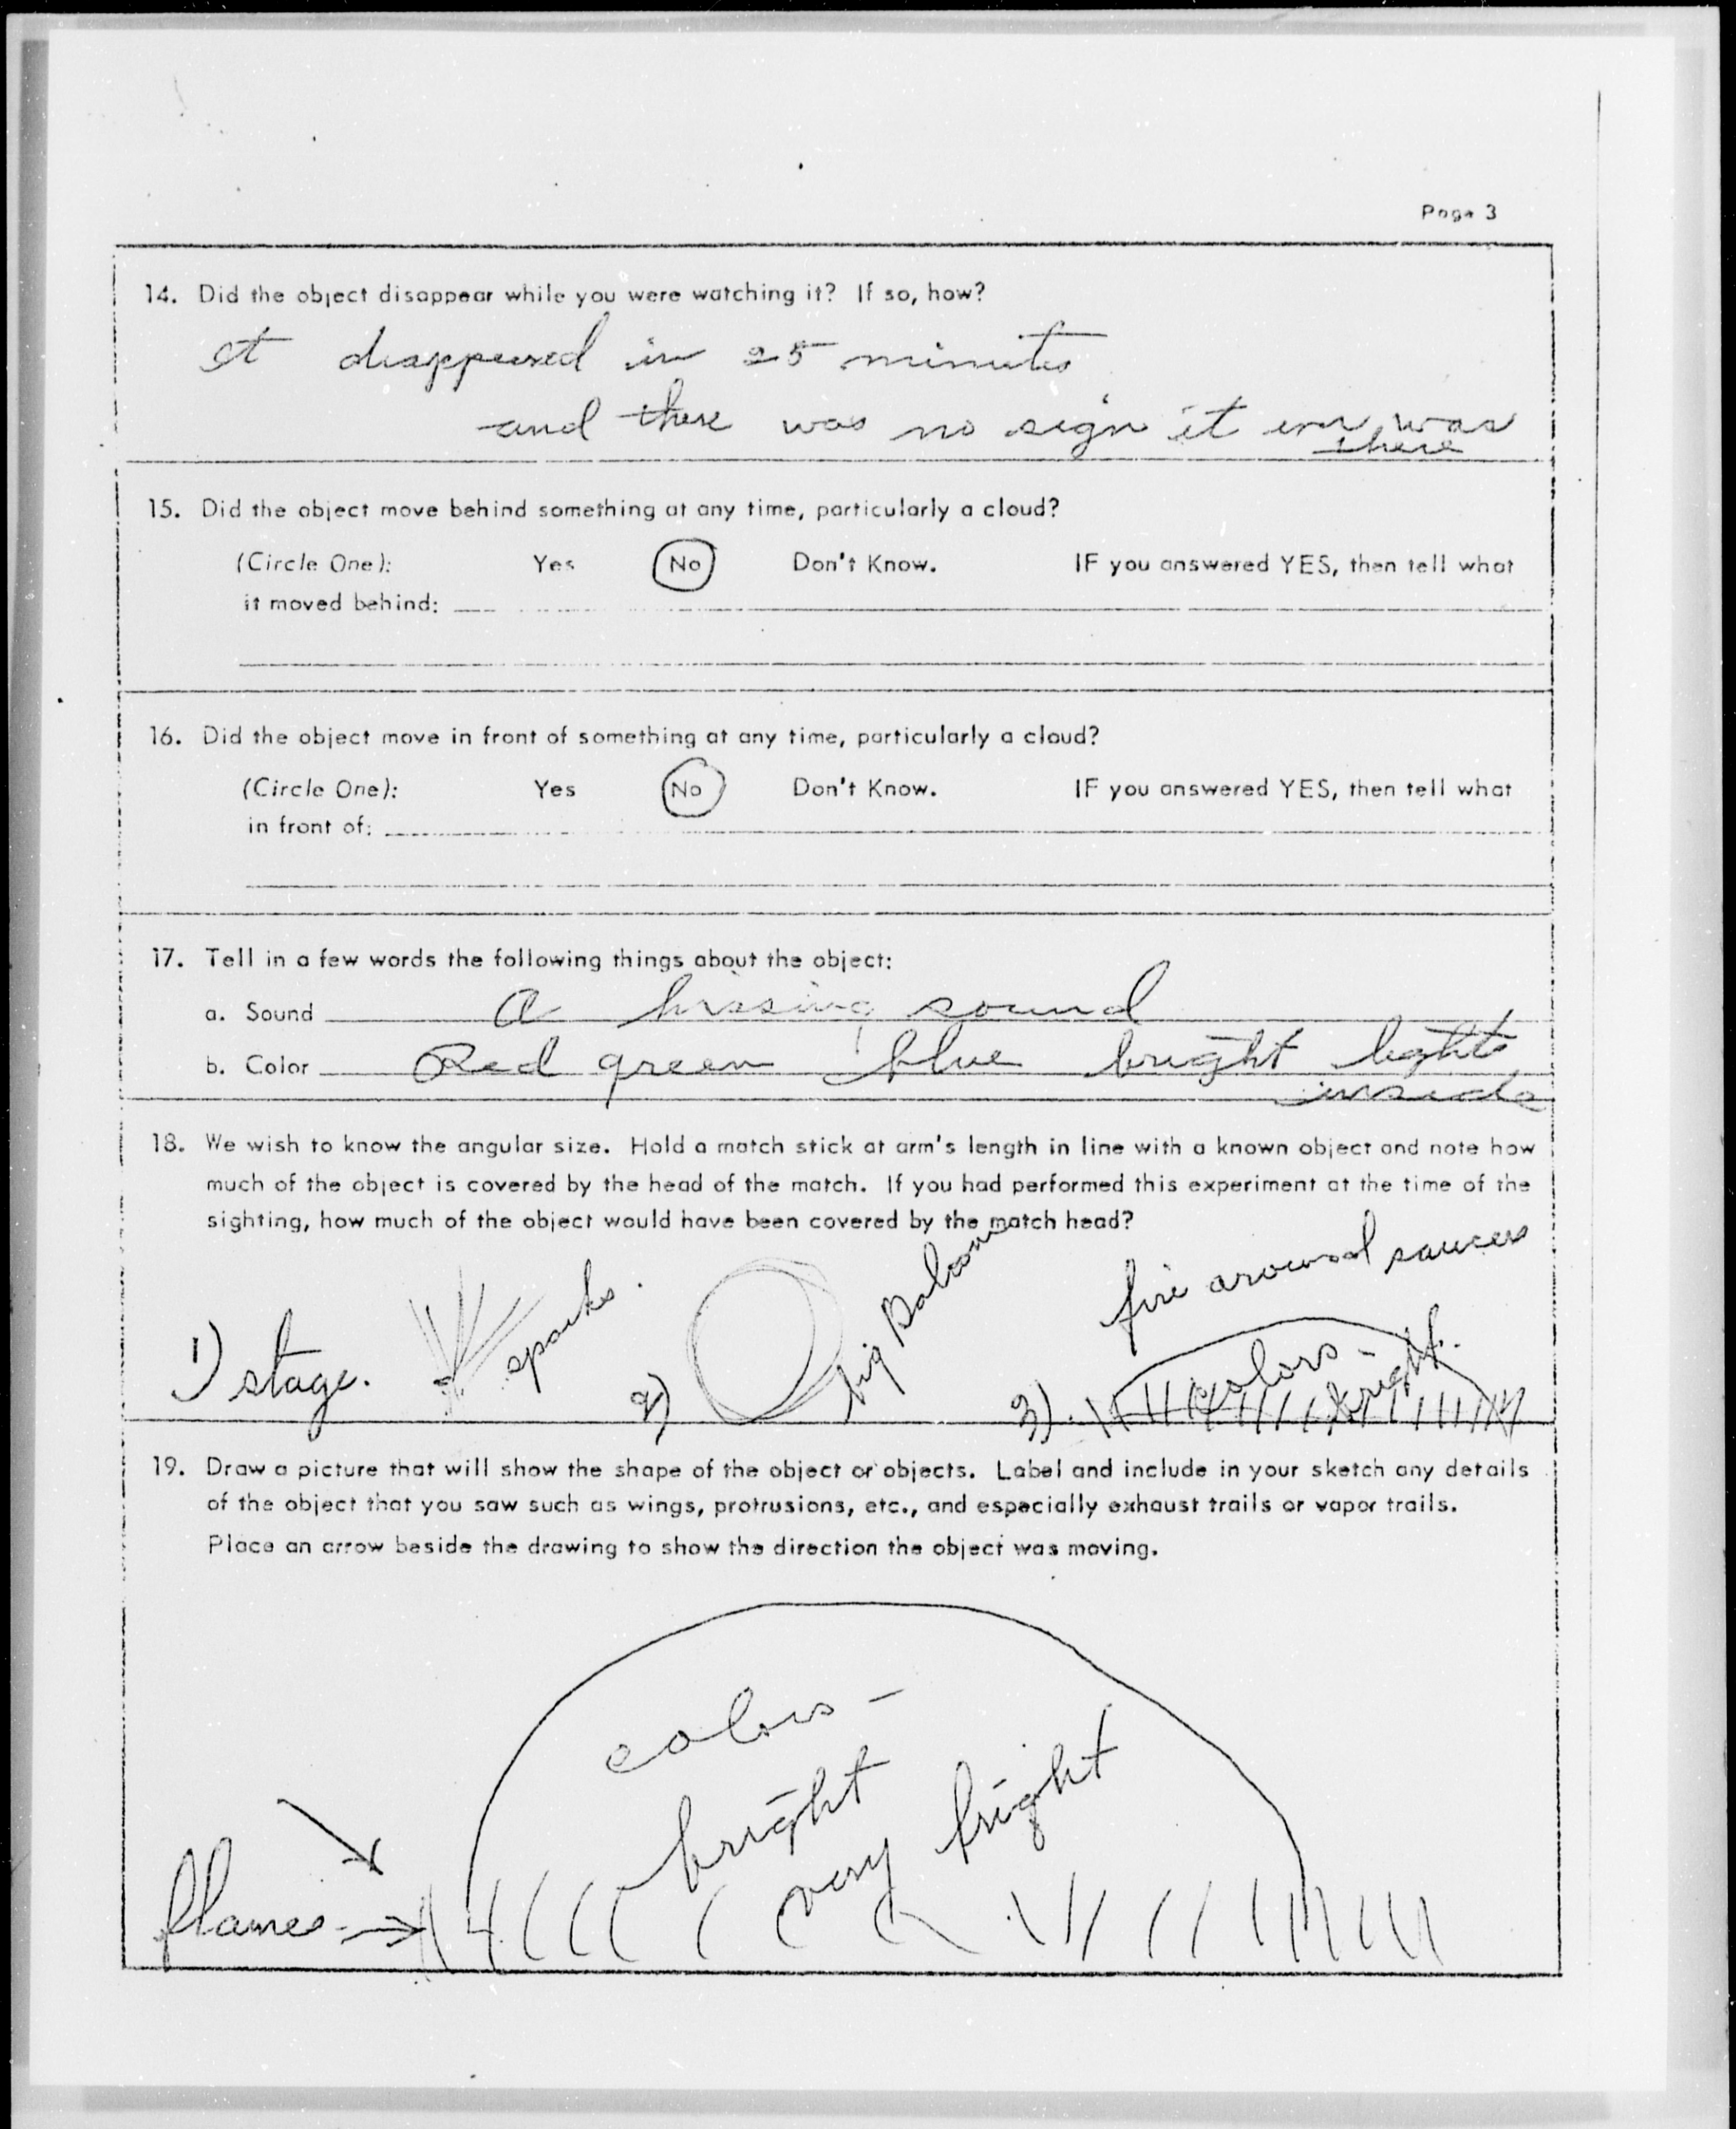 Page 3
14. Did the object disappear while you were watching it? If so, how?
It disappeared in 25 minutes
and there was no sign it ever was
there
15. Did the object move behind something at any time, particularly a cloud?
(Circle One): Yes No Don't Know. IF you answered YES, then tell what
it moved behind:
16. Did the object move in front of something at any time, particularly a cloud?
(Circle One): Yes No Don't Know. IF you answered YES, then tell what
in front of:
17. Tell in a few words the following things about the object:
a. Sound a hissing sound
b. Color Red green blue bright lights
inside
18. We wish to know the angular size. Hold a match stick at arm's length in line with a known object and note how
much of the object is covered by the head of the match. If you had performed this experiment at the time of the
sighting, how much of the object would have been covered by the match head?
1) stage.
sparks.
2)
big Baloon
fire around saucer
3)
colors -
bright.
19. Draw a picture that will show the shape of the object or objects. Label and include in your sketch any details
of the object that you saw such as wings, protrusions, etc., and especially exhaust trails or vapor trails.
Place an arrow beside the drawing to show the direction the object was moving.
colors -
bright
very bright
flames